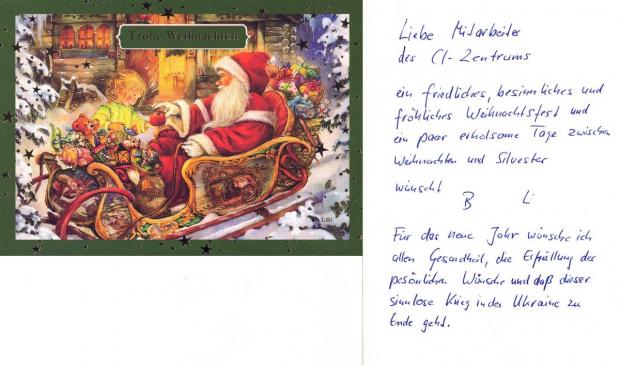 Frohe Weihnachten
Liebe Mitarbeiter
des CI-Zentrums
ein friedliches, besinnliches und
fröhliches Weihnachtsfest und
ein paar erholsame Tage zwischen
Weihnachten und Silvester
wünscht
B Li
Für das neue Jahr wünsche ich
allen Gesundheit, die Erfüllung der
persönlichen Wünsche und daß dieser
sinnlose Krieg in der Ukraine zu
Ende geht.